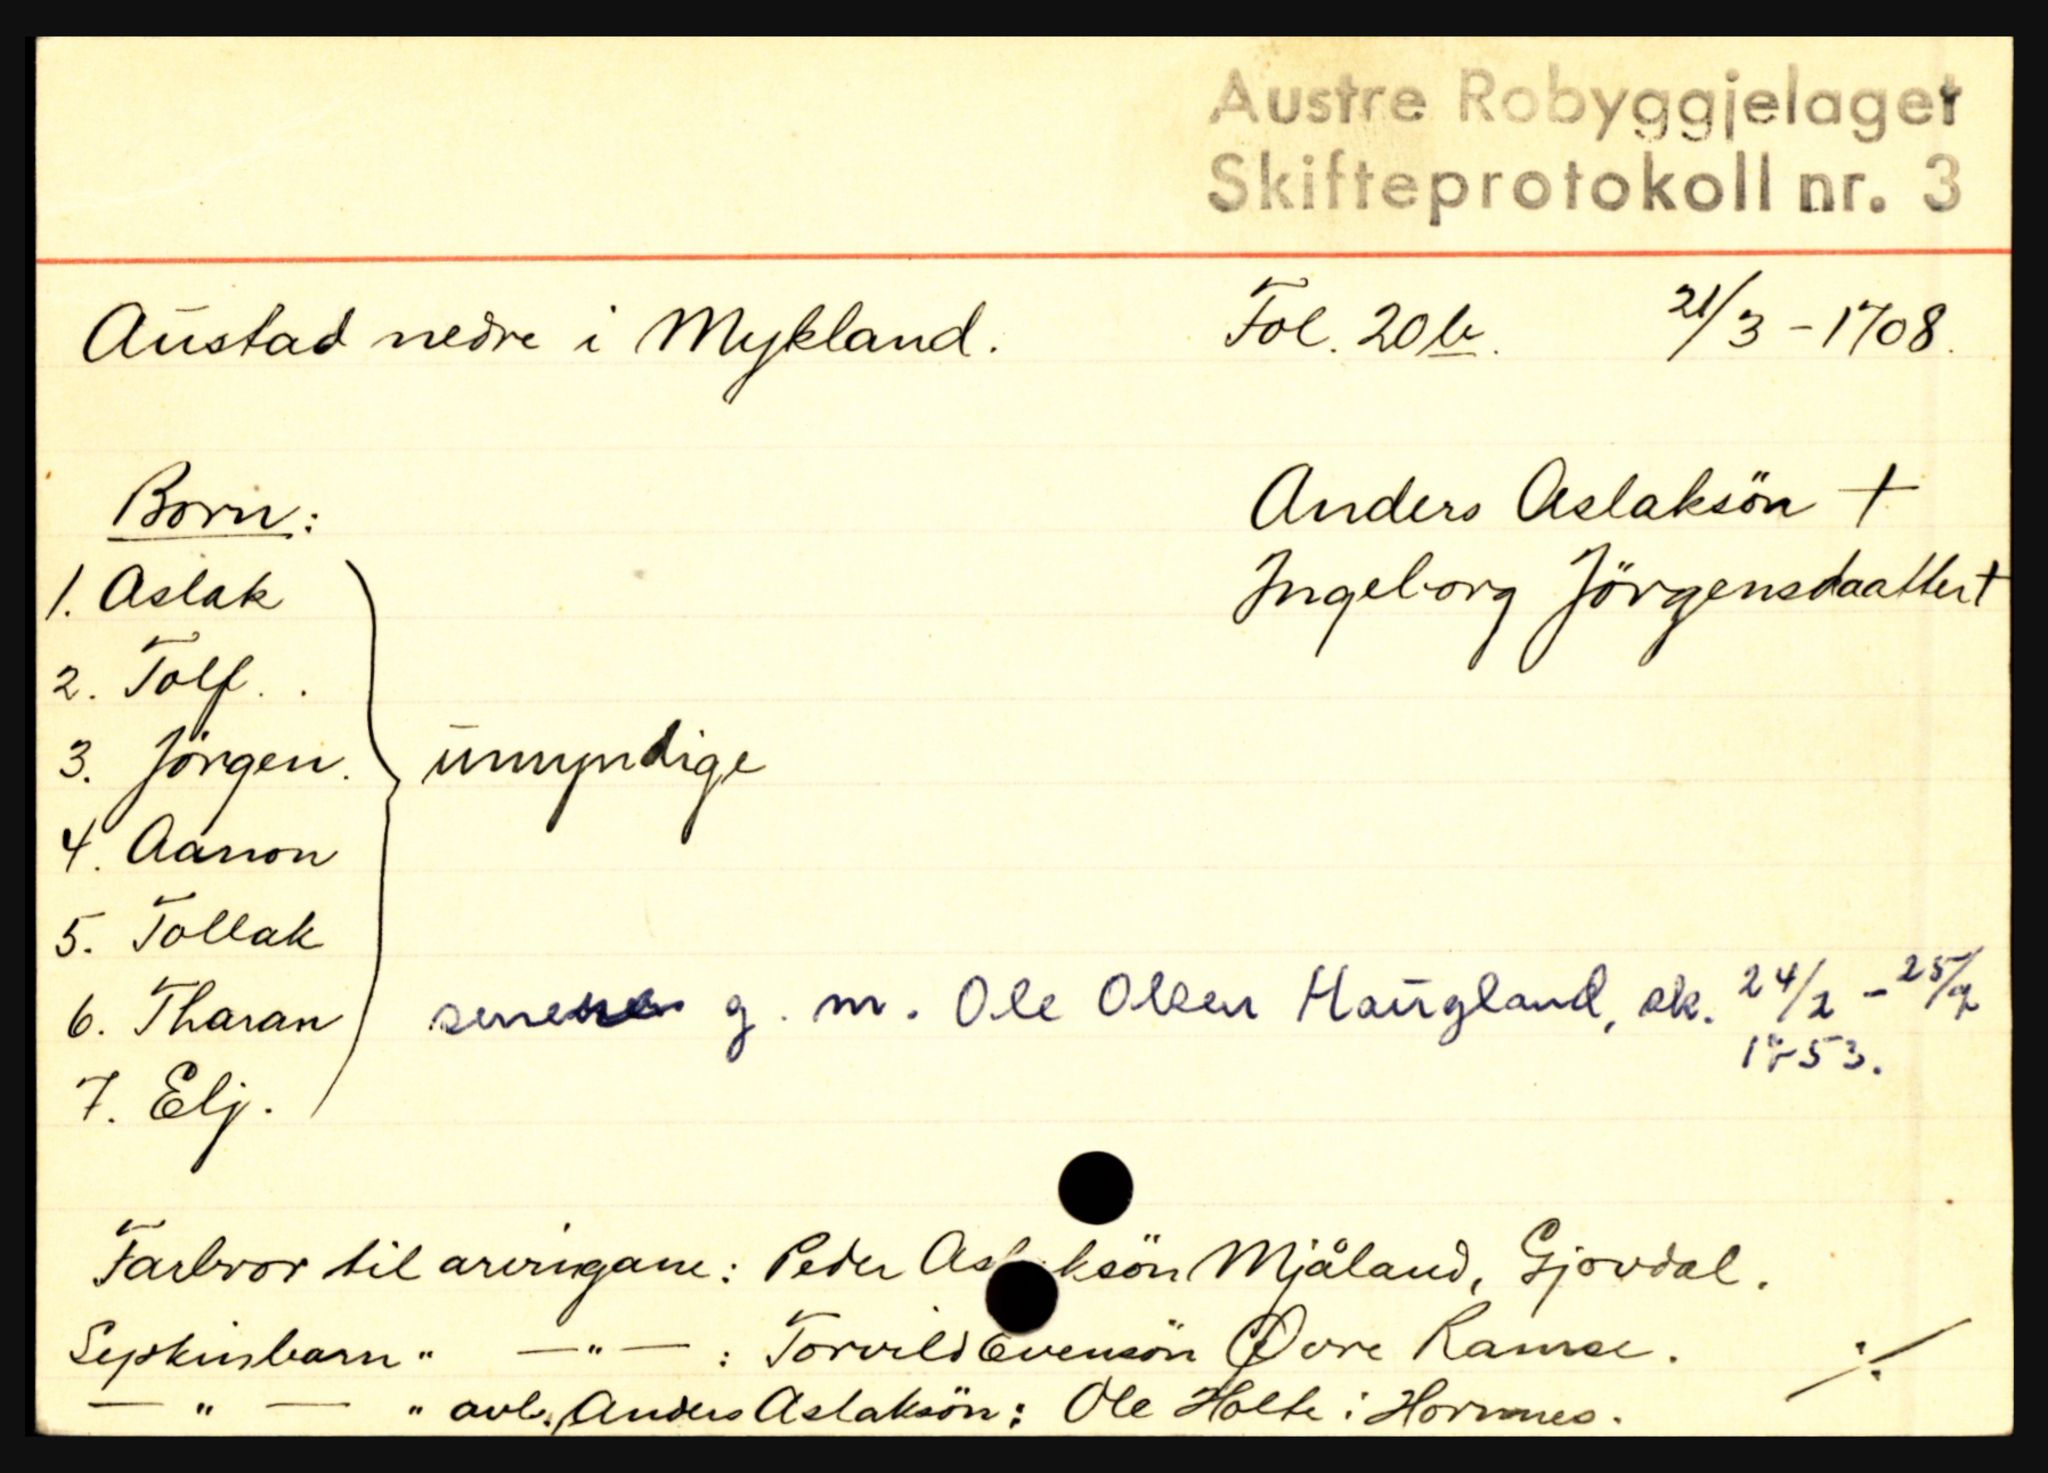 Austre Robyggjelaget
Skifteprotokoll nr. 3
Austad nedre i Mykland. Fol. 20b. 21/3 - 1708.
Born: Anders Aslaksön +
1. Aslak Ingeborg Jörgensdaatter +
2. Tolf . .
3. Jörgen. umyndige
4. Aanon
5. Tollak
6. Tharan senere g. m. Ole Olsen Haugland, sk. 24/2 - 25/9
1753.
7. Elj.
Farbror til arvingane: Peder Aslaksön Mjåland, Gjovdal.
Syskinbarn " — " — : Torvild Evensön Øvre Ramse.
— " — " avl. Anders Aslaksön: Ole Holte i Hornnes.
./.